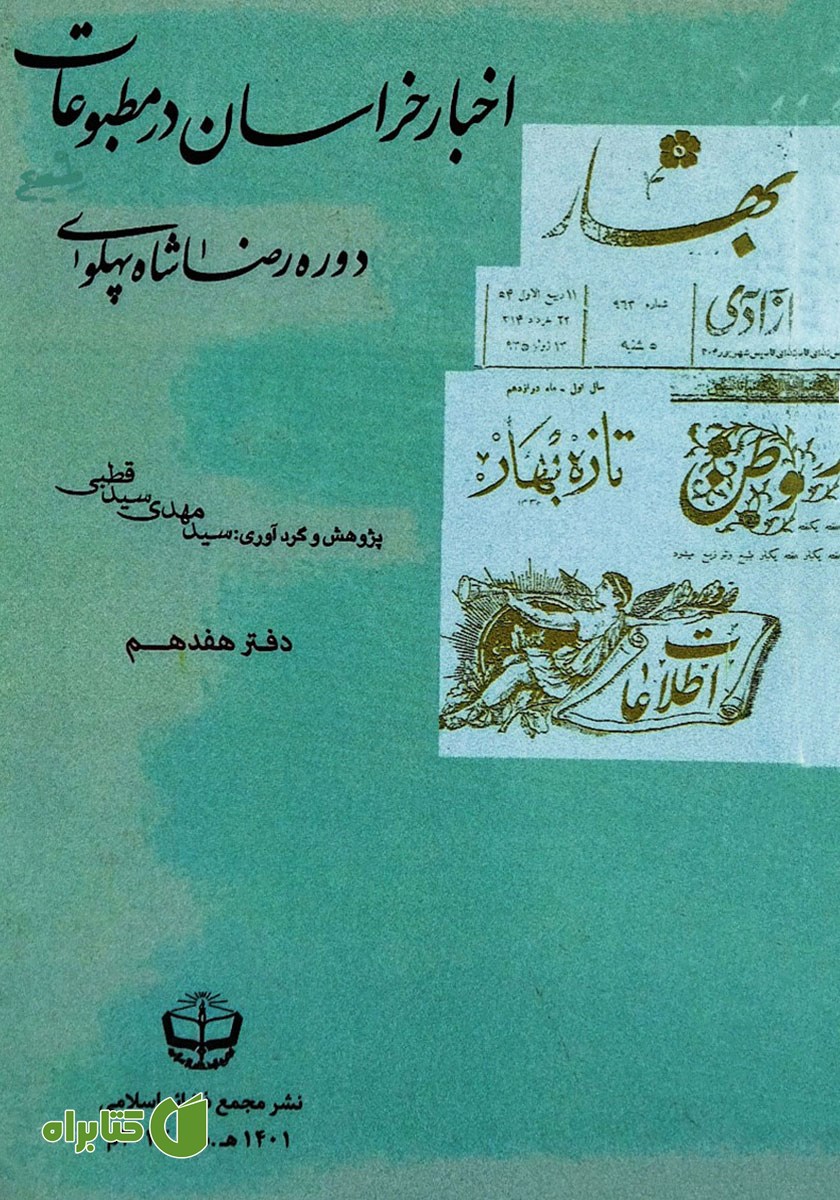 اخبار خراسان در مطبوعات
دوره رضاشاه پهلوی
پژوهش و گردآوری: سید مهدی سید قطبی
دفتر هفدهم
بهار
آزادی
شماره ۹۶۳
۵ شنبه
۱۱ ربیع الاول ۵۴
۲۲ خرداد ۳۱۴
۱۳ ژوئن ۹۳۵
سال اول - ماه دوازدهم
تازه بهار
۱۳۳۰
وطن
هفته یکبار طبع و توزیع میشود
اطلاعات
نشر مجمع ذخائر اسلامی
۱۴۰۱ هـ.
کتابراه